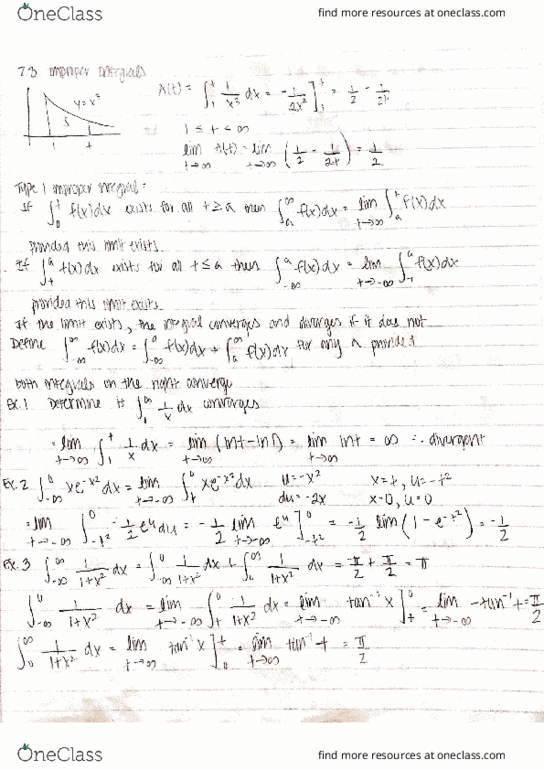 OneClass
find more resources at oneclass.com
7.3 improper integrals
y=x³
S
1 t
A(t) = ∫₁ᵗ 1/x³ dx = -1/2x² ]₁ᵗ = 1/2 - 1/2t
1 ≤ t < ∞
lim t→∞ A(t) = lim t→∞ (1/2 - 1/2t) = 1/2
Type 1 improper integral:
If ∫ᵗ f(x)dx exists for all t≥a then ∫ₐ^∞ f(x)dx = lim t→∞ ∫ₐᵗ f(x)dx
provided this limit exists.
If ∫ₜᵃ f(x)dx exists for all t≤a then ∫₋∞ᵃ f(x)dx = lim t→-∞ ∫ᵃ f(x)dx
provided this limit exists.
If the limit exists, the integral converges and diverges if it does not
Define ∫₋∞^∞ f(x)dx = ∫₋∞ᵃ f(x)dx + ∫ₐ^∞ f(x)dx for any a provided
both integrals on the right converge
Ex. 1 Determine if ∫₁^∞ 1/x dx converges
= lim t→∞ ∫₁ᵗ 1/x dx = lim t→∞ (lnt - ln1) = lim t→∞ lnt = ∞ ∴ divergent
Ex. 2 ∫₋∞⁰ xe^-x² dx = lim t→-∞ ∫ₜ⁰ xe^-x² dx u=-x² x=t, u=-t²
du=-2x x=0, u=0
= lim t→-∞ ∫₋ₜ²⁰ -1/2 eᵘ du = -1/2 lim t→-∞ eᵘ ]₋ₜ²⁰ = -1/2 lim (1 - e^-t²) = -1/2
Ex. 3 ∫₋∞^∞ 1/1+x² dx = ∫₋∞⁰ 1/1+x² dx + ∫₀^∞ 1/1+x² dx = π/2 + π/2 = π
∫₋∞⁰ 1/1+x² dx = lim t→-∞ ∫ₜ⁰ 1/1+x² dx = lim t→-∞ tan⁻¹ x ]ₜ⁰ = lim t→-∞ -tan⁻¹ t = π/2
∫₀^∞ 1/1+x² dx = lim t→∞ tan⁻¹ x ]₀ᵗ = lim t→∞ tan⁻¹ t = π/2
OneClass
find more resources at oneclass.com